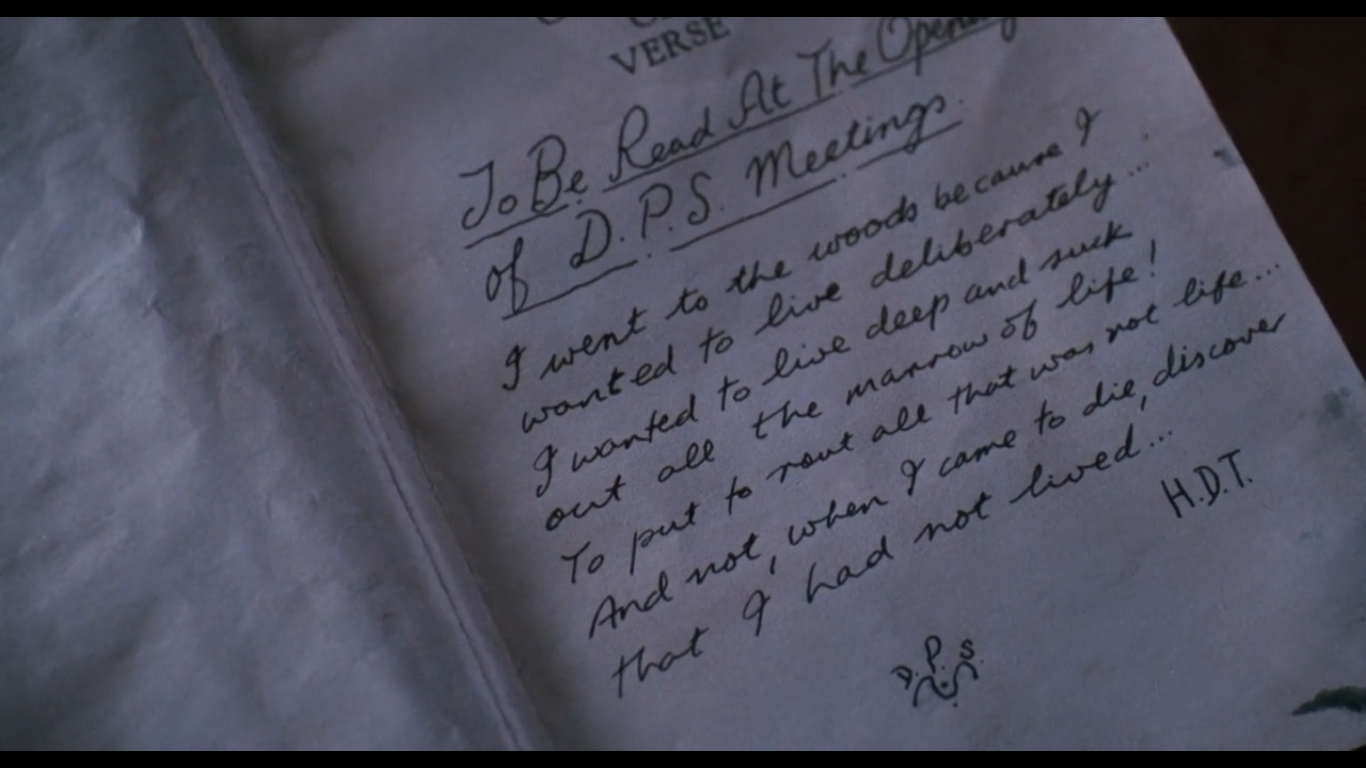 VERSE
To Be Read At The Opening
of D.P.S. Meetings.
I went to the woods because I
wanted to live deliberately...
I wanted to live deep and suck
out all the marrow of life!
To put to rout all that was not life...
And not, when I came to die, discover
that I had not lived...
H.D.T.
D.P.S.